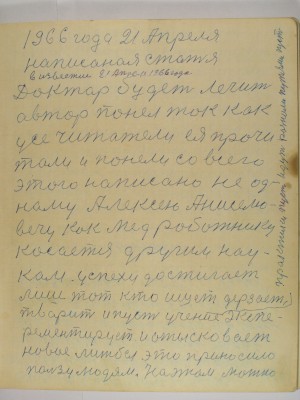 1966 года 21 Апреля
написаная статя
в известии 21 апреля 1966 года
Доктар будет лечит
автор понел ток как
усе читатели ея прочи
тали и понели со всего
этого написано не од-
наму Алексею Анисемо-
вечу как мед роботнику
косается другим нау-
кам. успехи достигает
лише тот кто ищит дерзает,
тварит и пуст учение Экспе-
рементирует и отысковает
новое лишбы это приносило
ползу людям. На этом можно